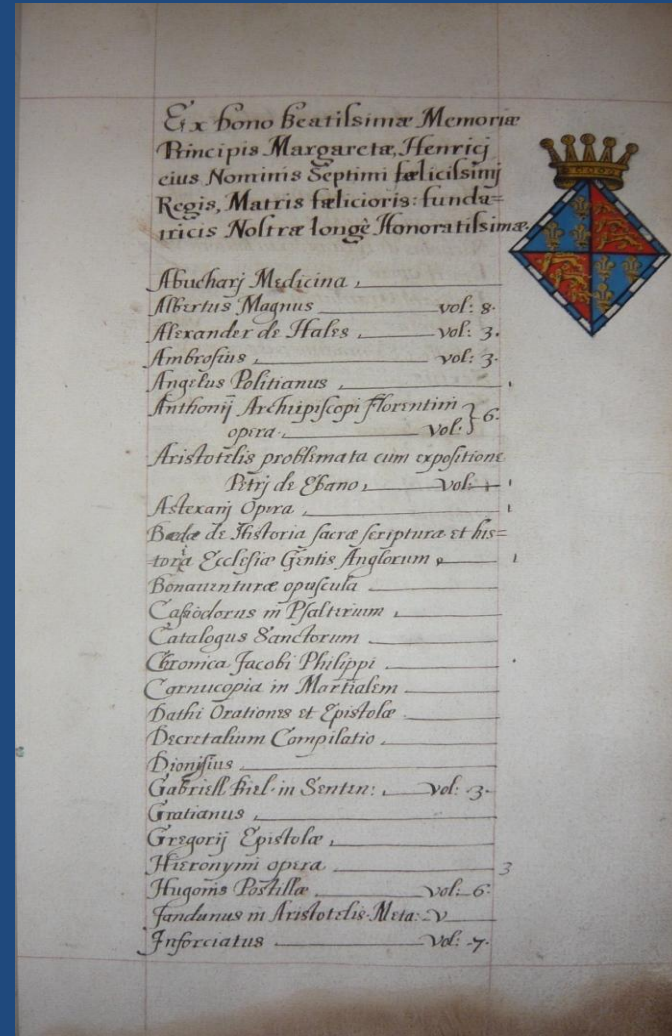 Ex dono beatissimæ Memoriæ
Principis Margaretæ, Henricj
eius Nominis Septimi fælicissimj
Regis, Matris fælicioris: funda=
tricis Nostræ longè Honoratissimæ.
Abucharj Medicina
Albertus Magnus vol: 8.
Alexander de Hales vol: 3.
Ambrosius vol: 3.
Angelus Politianus 1
Anthonij Archiepiscopi Florentini
opera. vol: } 6.
Aristotelis problemata cum expositione
Petrj de Ebano vol: 1 1
Astexanj Opera 1
Bædæ de Historia sacræ scripturæ et his=
toria Ecclesiæ Gentis Anglorum 1
Bonauenturæ opuscula
Cassiodorus in Psalterium
Catalogus Sanctorum
Chronica Jacobi Philippi
Cornucopia in Martialem
Dathi Orationes et Epistolæ
Decretalium Compilatio
Dionisius
Gabriell Biel in Senten: vol: 3.
Gratianus
Gregorij Epistolæ
Hieronymi opera 3
Hugonis Postillæ vol: 6.
Jandunus in Aristotelis Meta: V
Inforciatus Vol: 7.